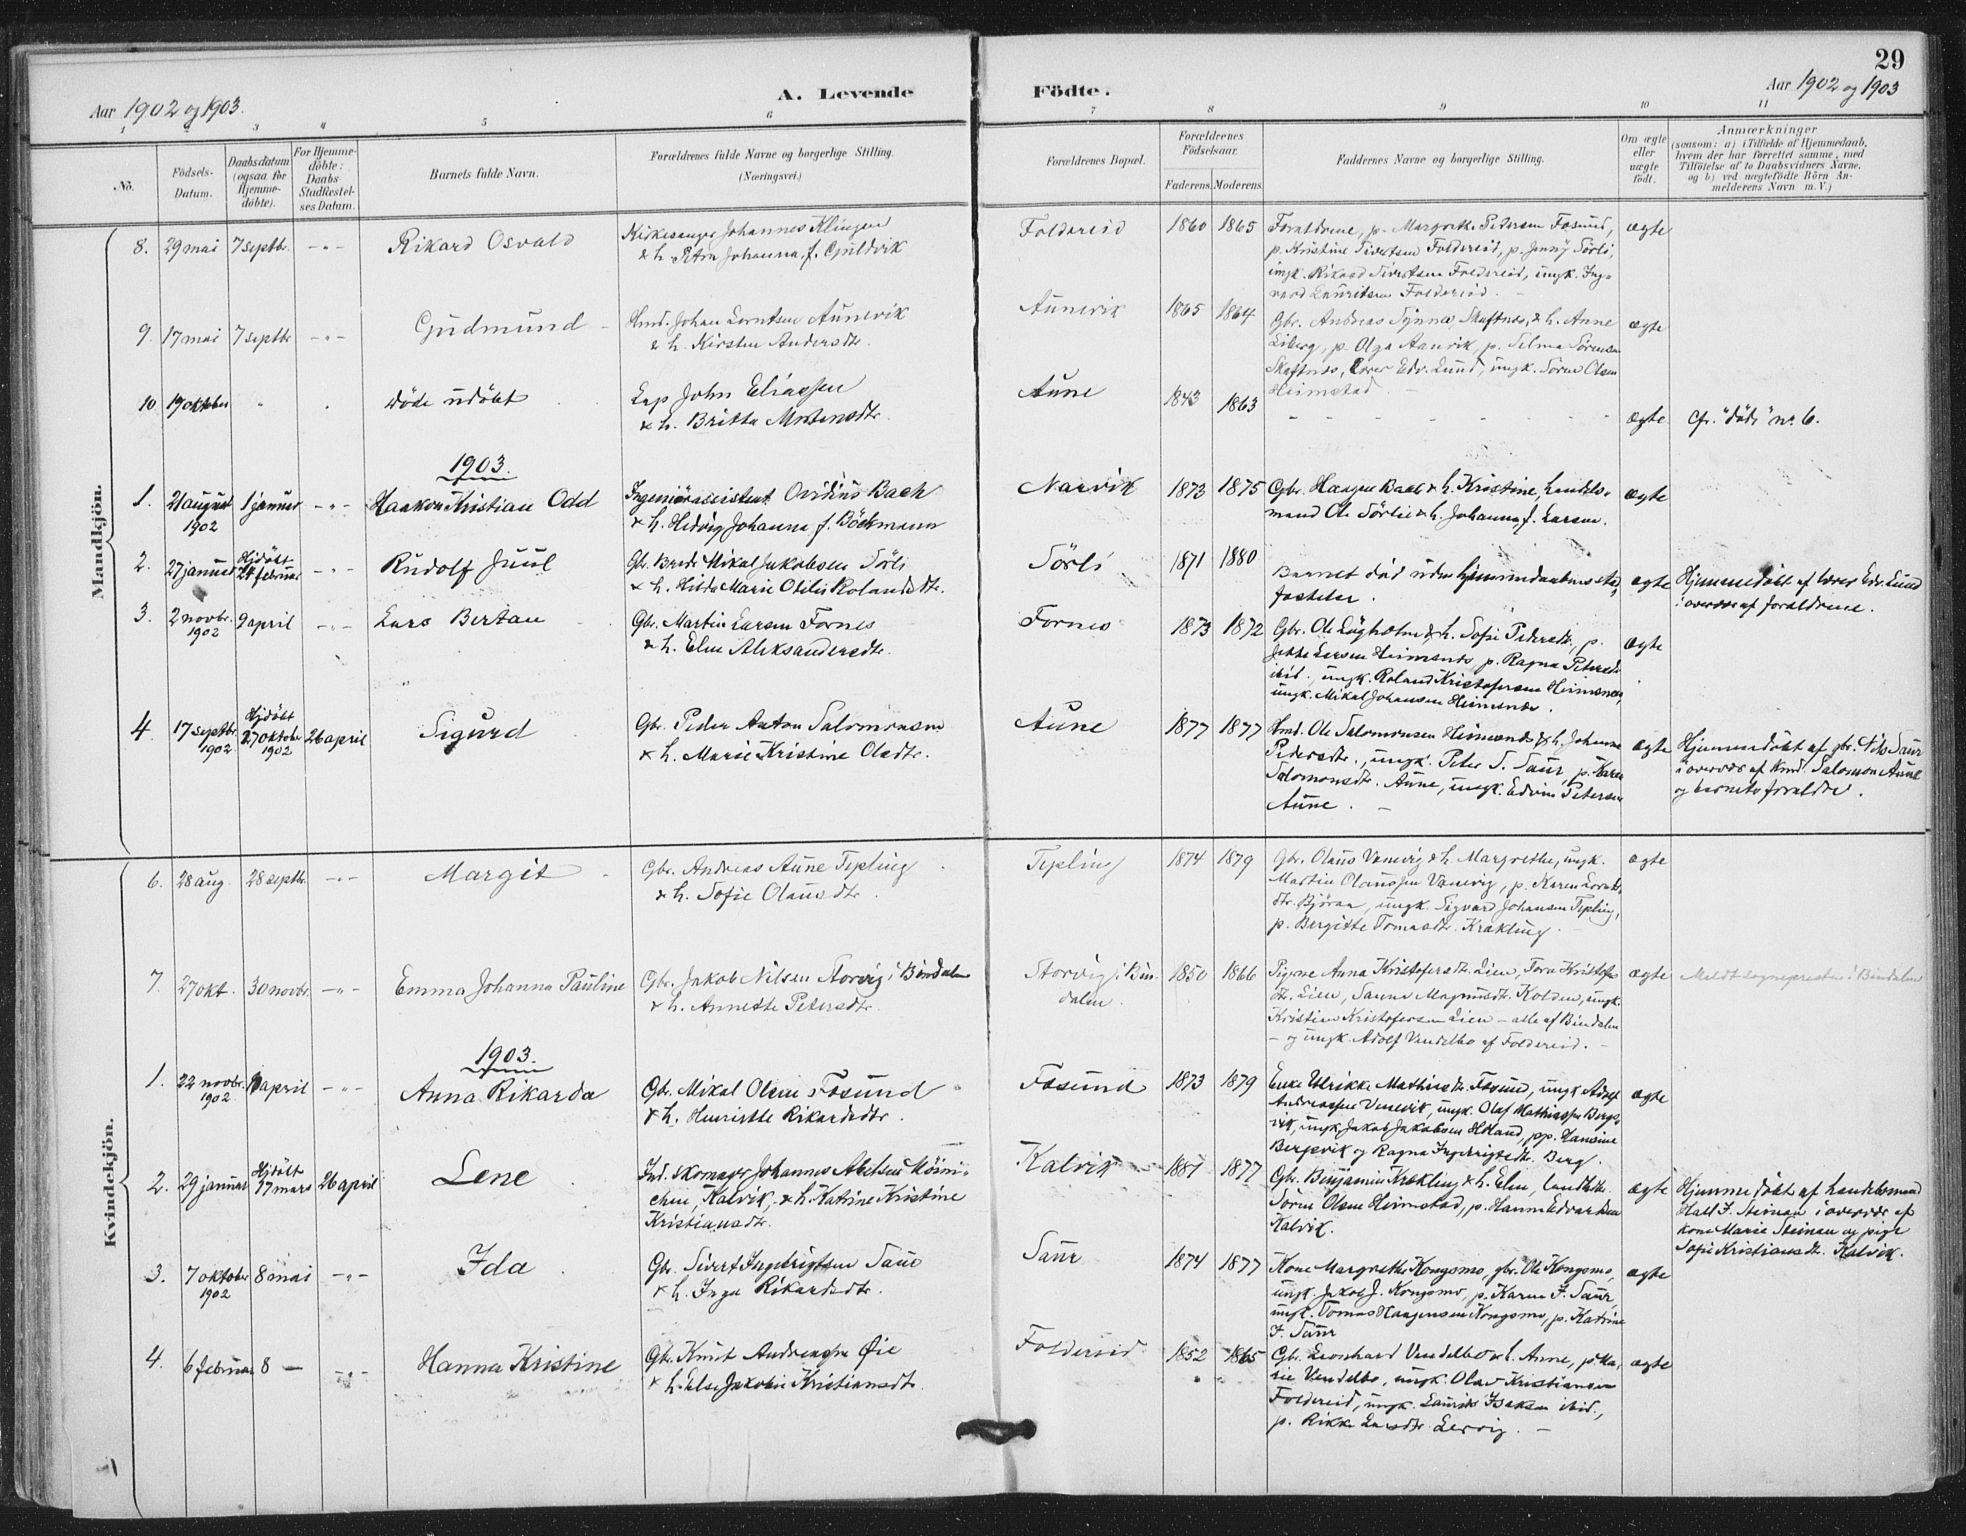 29
Aar 1902 og 1903.
A. Levende
Födte.
Aar 1902 og 1903
1 2 3 4 5 6 7 8 9 10 11
No.
Födsels-
Datum.
Daabsdatum
(ogsaa for
Hjemme-
döbte).
For Hjemme-
döbte:
Daabs-
Stadfæstel-
ses Datum.
Barnets fulde Navn.
Forældrenes fulde Navne og borgerlige Stilling.
(Næringsvei.)
Forældrenes Bopæl.
Forældrenes
Födselsaar.
Faderens. Moderens.
Faddernes Navne og borgerlige Stilling.
Om ægte
eller
uægte
födt.
Anmærkninger
(saasom: a) i Tilfælde af Hjemmedaab,
hvem der har forrettet samme, med
Tilföielse af to Daabsvidners Navne,
og b) ved uægtefödte Börn An-
melderens Navn m. V.)
Mandkjön.
8. 29 mai 7 septbr. -"- Rikard Osvald
Kirkesanger Johannes Klingen
& h. Petra Johanna f. Gjuldvik
Foldereid 1860 1865
Forældrene, p. Margrethe Pedersen Fosund,
p. Kristine Sivertsen Foldereid, p. Jenny Sörli,
ungk. Rikard Sivertsen Foldereid, ungk. Ing-
vard Lauritsen Foldereid. -
ægte
9. 17 mai 7 septbr -"- Gudmund
Hmd. Johan Lorntsen Aunevik
& h. Kirsten Andersdtr.
Aunevik 1865 1864
Gbr. Andreas Skaftnes, & h. Anne
p. Olga Aanvik, p. Selma Sörensen
Skaftnes, lærer Edv. Lund, ungk. Sören Olsen
Heimstad. -
ægte
10. 19 oktober " döde udöbt
Lap John Eliassen
& h. Britta Mortensdtr.
Aune 1843 1863
ægte
Cfr. "döde" no. 6.
1903.
1. 21 august 1902 1 januar -"- Haakon Kristian Odd
Ingeniörassistent Ovidius Bach
& h. Hedvig Johanna f. Böckmann
Narvik 1873 1875
Gbr. Haagen Bach & h. Kristine, handels-
mand Ole Sörlie & h. Johanna f. Larsen.
ægte
2. 27 januar Hjdöbt 24 februar -"- Rudolf Juul
Gbr. Brede Mikal Jakobsen Sörli
& h. Hilda Marie Otelie Rolandsdtr.
Sörli 1871 1880
Barnet död uden hjemmedaabens stad-
fæstelse.
ægte
Hjemmedöbt af lærer Edv. Lund
i overvær af forældrene.
3. 2 novbr. 1902 9 april -"- Lars Bertau
Gbr. Martin Larsen Fornes
& h. Elen Aleksandersdtr.
Fornes 1873 1872
Gbr. Ole Lögholm & h. Sofie Pedersdtr., p.
Larsen Heimsnes, p. Ragna Petersdtr
ibid., ungk. Roland Kristofersen Heimsnes,
ungk. Mikal Johansen Heimsnes.
ægte
4. 17 septbr. 1902 Hjdöbt 27 oktober 1902 26 april Sigurd
Gbr. Peder Anton Salomonsen
& h. Marie Kristine Olsdtr.
Aune 1877 1877
Hmd. Ole Salomonsen Heimsnes & h. Johanna
Pedersdtr., ungk. Peter S. Saur, p. Karen
Salomonsdtr. Aune, ungk. Edvin Petersen
Aune. -
ægte
Hjemmedöbt af gbr. Nils Saur
i overvær af Kmd. Salomon Aune
og barnets forældre.
Kvindekjön.
6. 28 aug. 28 septbr. -"- Margit
Gbr. Andreas Aune Tepling
& h. Sofie Olausdtr.
Tepling 1874 1879
Gbr. Olaus Vanevig & h. Margrethe, ungk.
Martin Olaussen Vanevig, p. Karen Lornts-
dtr. Björaa, ungk. Sigvard Johansen Tepling,
p. Bergitte Tomasdtr. Krakling -
ægte
7. 27 okt. 30 novbr. -"- Emma Johanna Pauline
Gbr. Jakob Nilsen Storvig i Bindalen
& h. Annette Petersdtr.
Storvig i Bin-
dalen. 1850 1866
Pigerne Anna Kristofersdtr. Lien, Tora Kristofers-
dtr. Lien, Sanna Magnusdtr. Kolden, ungk.
Kristian Kristofersen Lien - alle af Bindalen
- og ungk. Adolf Vendelbo af Foldereid. -
ægte
Meldt sognepresten i Bindalen
1903.
1. 22 novbr. 1902 april -"- Anna Rikarda
Gbr. Mikal Olsen Fosund
& h. Henriette Rikardsdtr.
Fosund 1873 1879
Enke Ulrikke Mathisdtr. Fosund, ungk. Adolf
Andreassen Vanevik, ungk. Olaf Mathiassen Bergs-
vik, ungk. Jakob Jakobsen Höland, pp. Hansine
Bergsvik og Ragna Ingebrigtsdtr. Berg.
ægte
2. 29 januar Hjdöbt 17 mars 26 april Lene
Ind. skomager Johannes Abelsen
Kalvik, & h. Katrine Kristine
Kristiansdtr.
Kalvik 1881 1877
Gbr. Benjamin Krækling & h. Elen,
Sören Olsen Heimstad, p. Hanna Edvardsen
Kalvik.
ægte
Hjemmedöbt af handelsmand
Hall J. Steinan i overvær af
kone Marie Steinan og pige
Sofie Kristiansdtr. Kalvik.
3. 7 oktober 1902 8 mai -"- Ida
Gbr. Sivert Ingebrigtsen Saur
& h. Inga Rikardsdtr.
Saur 1874 1877
Kone Margrethe Kongsmo, gbr. Ole Kongsmo,
ungk. Jakob J. Kongsmo, p. Karen I. Saur,
ungk. Tomas Haagensen Kongsmo, p. Katrine
I. Saur
ægte
4. 6 februar 8 - -"- Hanna Kristine
Gbr. Knut Andreassen Öie
& h. Else Jakobine Kristiansdtr.
Foldereid 1852 1865
Gbr. Leonhard Vendelbo & h. Anne, p. Ka-
rie Vendelbo, ungk. Olav Kristiansen
Foldereid, ungk. Laurits Isaksen ibid.,
p. Rikke Larsdtr. Lervig. -
ægte